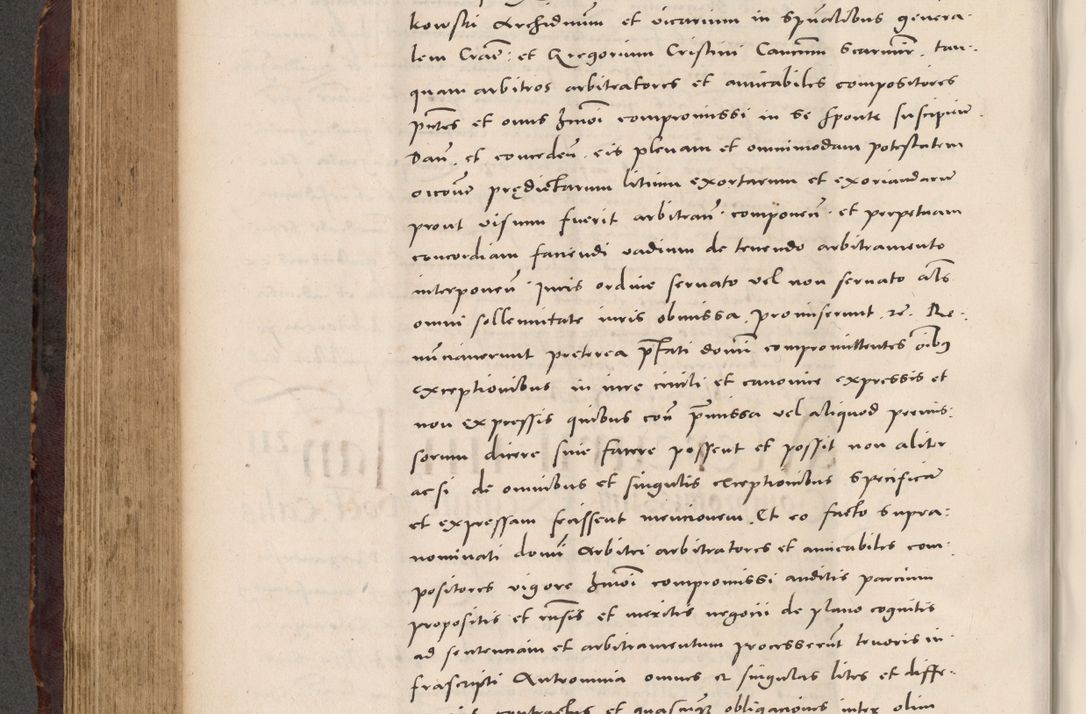 kowski Archidnum et vicarium in spualibus genera-
lem Crac̃. et Gregorium Cristini Canm̃ Scarmir̃. tan-
quam arbitros arbitratores et amicabiles compositores
pñtes et onus hmõi compromissi in se sponte suscipien̄.
Dan̄. et conceden̄. eis plenam et omnimodam potestatem
prędictarum litium exortarum et exoriundarum
prout visum fuerit arbitran̄. componen̄. et perpetuam
concordiam faciendi vadium de tenendo arbitramento
interponen̄. Juris ordine servato vel non servato als̄
omni sollennitate iuris obmissa. promiserunt. rc. Re-
nunciaverunt preterea pfati domini compromittentes oibus
exceptionibus in iure civili et canonico expressis et
non expressis quibus con̄ pmissa vel aliquod premis-
sorum dicere sive facere possent et possit non aliter
ac si de omnibus et singulis exceptionibus specificam
et expressam fecissent mencionem. Et eo facto supra-
nominati domini Arbitri arbitratores et amicabiles com-
positores vigore hmõi compromissi auditis parcium
propositis et rñsis et meritis negocii de plano cognitis
ad sentenciam et arbitramentum processerunt tenoris in-
frascripti Antromnia omnes et singulas lites et diffe-
contractus et quascunque obligaciones inter olim